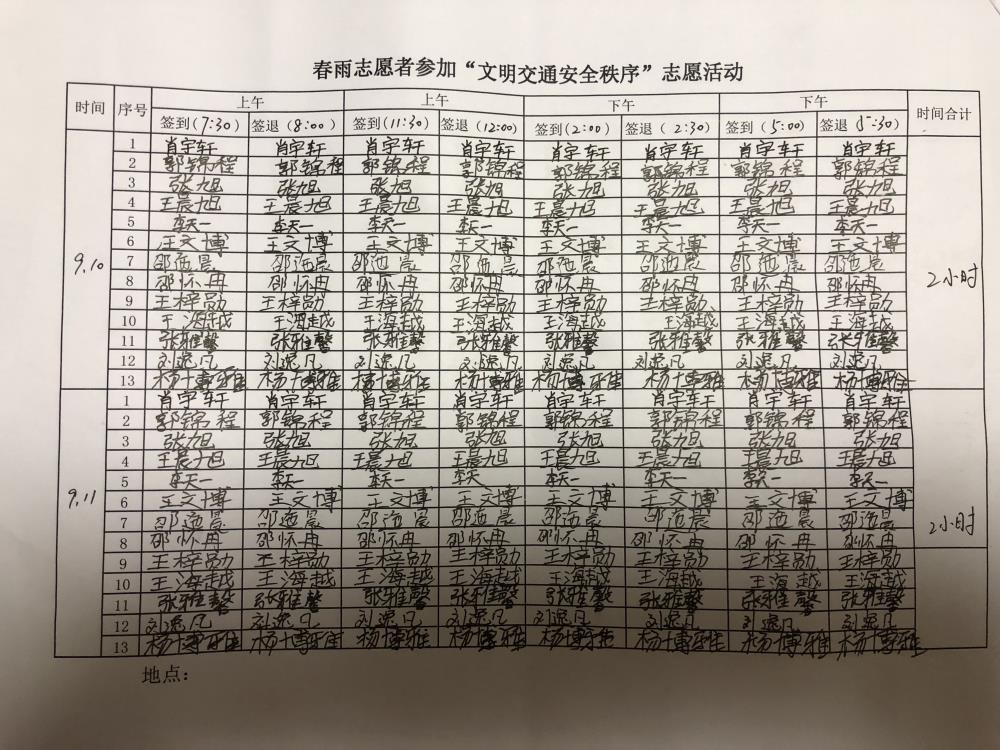 春雨志愿者参加“文明交通安全秩序”志愿活动
时间 序号 上午 上午 下午 下午 时间合计
签到(7:30) 签退(8:00) 签到(11:30) 签退(12:00) 签到(2:00) 签退(2:30) 签到(5:00) 签退 5:30)
9.10
1 肖宇轩 肖宇轩 肖宇轩 肖宇轩 肖宇轩 肖宇轩 肖宇轩 肖宇轩
2 郭锦程 郭锦程 郭锦程 郭锦程 郭锦程 郭锦程 郭锦程 郭锦程
3 张旭 张旭 张旭 张旭 张旭 张旭 张旭 张旭
4 王晨旭 王晨旭 王晨旭 王晨旭 王晨旭 王晨旭 王晨旭 王晨旭
5 李天一 李天一 李天一 李天一 李天一 李天一 李天一 李天一
6 王文博 王文博 王文博 王文博 王文博 王文博 王文博 王文博
7 邵迤晨 邵迤晨 邵迤晨 邵迤晨 邵迤晨 邵迤晨 邵迤晨 邵迤晨
8 邵怀冉 邵怀冉 邵怀冉 邵怀冉 邵怀冉 邵怀冉 邵怀冉 邵怀冉
2小时
9 王梓勋 王梓勋 王梓勋 王梓勋 王梓勋 王梓勋 王梓勋 王梓勋
10 王海越 王海越 王海越 王海越 王海越 王海越 王海越 王海越
11 张雅馨 张雅馨 张雅馨 张雅馨 张雅馨 张雅馨 张雅馨 张雅馨
12 刘逸凡 刘逸凡 刘逸凡 刘逸凡 刘逸凡 刘逸凡 刘逸凡 刘逸凡
13 杨博雅 杨博雅 杨博雅 杨博雅 杨博雅 杨博雅 杨博雅 杨博雅
9.11
1 肖宇轩 肖宇轩 肖宇轩 肖宇轩 肖宇轩 肖宇轩 肖宇轩 肖宇轩
2 郭锦程 郭锦程 郭锦程 郭锦程 郭锦程 郭锦程 郭锦程 郭锦程
3 张旭 张旭 张旭 张旭 张旭 张旭 张旭 张旭
4 王晨旭 王晨旭 王晨旭 王晨旭 王晨旭 王晨旭 王晨旭 王晨旭
5 李天一 李天一 李天一 李天 李天一 李天一 李天一 李天一
6 王文博 王文博 王文博 王文博 王文博 王文博 王文博 王文博
7 邵迤晨 邵迤晨 邵迤晨 邵迤晨 邵迤晨 邵迤晨 邵迤晨 邵迤晨
2小时
8 邵怀冉 邵怀冉 邵怀冉 邵怀冉 邵怀冉 邵怀冉 邵怀冉 邵怀冉
9 王梓勋 王梓勋 王梓勋 王梓勋 王梓勋 王梓勋 王梓勋 王梓勋
10 王海越 王海越 王海越 王海越 王海越 王海越 王海越 王海越
11 张雅馨 张雅馨 张雅馨 张雅馨 张雅馨 张雅馨 张雅馨 张雅馨
12 刘逸凡 刘逸凡 刘逸凡 刘逸凡 刘逸凡 刘逸凡 刘逸凡 刘逸凡
13 杨博雅 杨博雅 杨博雅 杨博雅 杨博雅 杨博雅 杨博雅 杨博雅
地点：